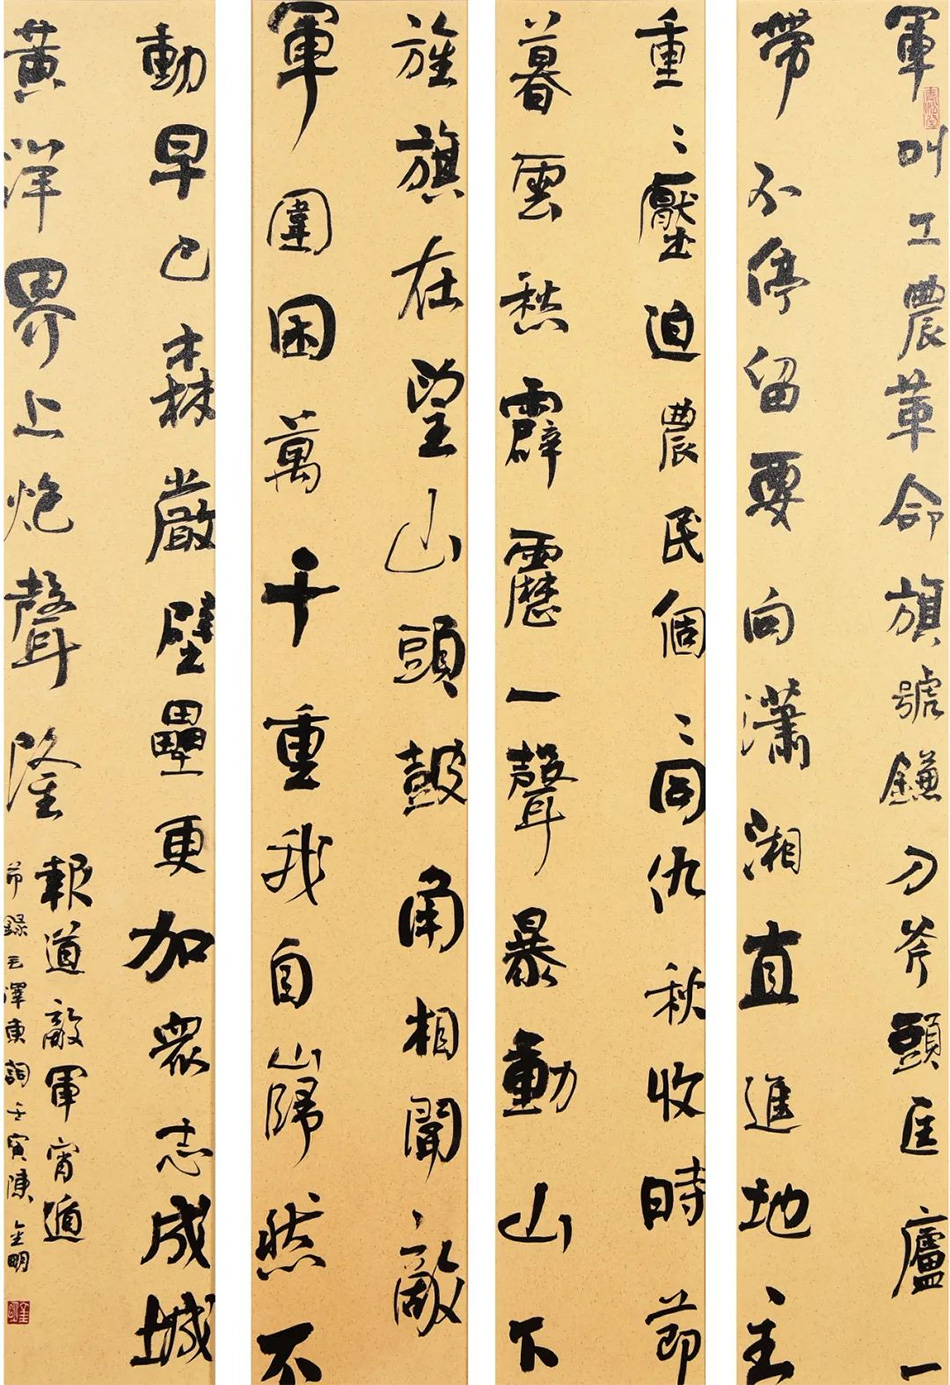 軍叫工農革命旗號鐮刀斧頭匡廬一
帶不停留要向瀟湘直進地主
重〻壓迫農民個〻同仇秋收時節
暮雲愁霹靂一聲暴動山下
旌旗在望山頭鼓角相聞敵
軍圍困萬千重我自巋然不
動早已森嚴壁壘更加衆志成城
黃洋界上炮聲隆
報道敵軍宵遁
節錄毛澤東詞壬寅陳金明